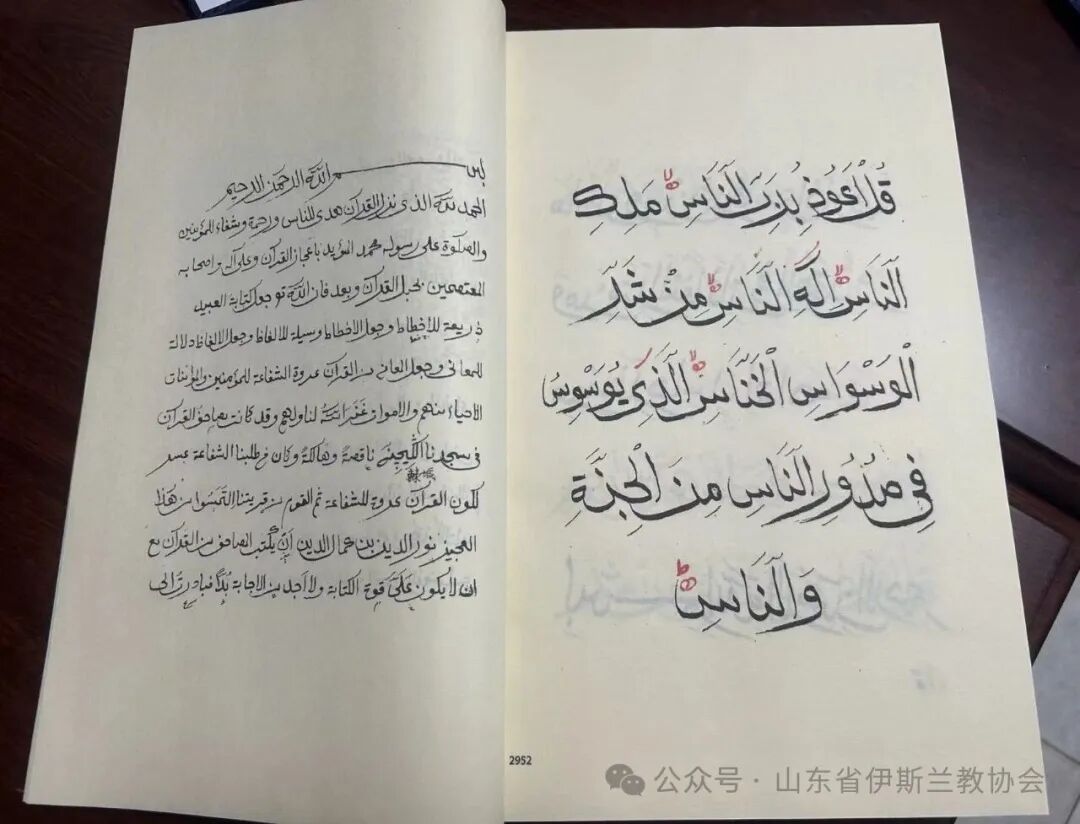 قُلْ اَعُوذُ بِرَبِّ النَّاسِ مَلِكِ
النَّاسِ اِلَهِ النَّاسِ مِنْ شَرِّ
الْوَسْوَاسِ الْخَنَّاسِ الَّذِي يُوَسْوِسُ
فِي صُدُورِ النَّاسِ مِنَ الْجِنَّةِ
وَالنَّاسِ
2952
بسم الله الرحمن الرحيم
الحمد لله الذي نزل القرآن هدى للناس ورحمة وشفاء للمؤمنين
والصلوة على رسوله محمد المؤيد باعجاز القرآن وعلى آله واصحابه
المعتصمين بحبل القرآن وبعد فان الله تع جعل كتابة العبيد
ذريعة للاخطاط وجعل الاخطاط وسيلة للالفاظ وجعل الالفاظ دلالة
للمعاني وجعل المعاني من القرآن عروة الشفاعة للمؤمنين والمؤمنات
الاحياء منهم والاموات غفر الله لنا ولهم وقد كانت صحائف القرآن
في مسجدنا ناقصة وهالكة وكان في طلبنا الشفاعة عسر
لكون القرآن عروة للشفاعة ثم القوم من قريتنا التمسوا من هذا
العجيز نور الدين بن جمال الدين ان يكتب الصحائف من القرآن مع
ان لا يكون علي قوة الكتابة ولا اجد من الاجابة بدا فبادرت الى
公众号 · 山东省伊斯兰教协会